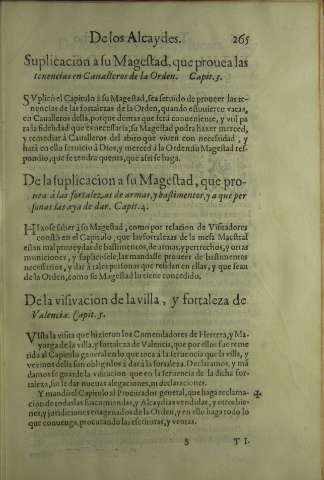 De los Alcaydes. 265
Suplicacion à su Magestad, que provea las
tenencias en Caualleros de la Orden. Capit. 3.
SVplicò el Capitulo à su Magestad, sea seruido de proueer las te-
nencias de las fortalezas de la Orden, quando estuuieren vacas,
en Caualleros della, porque demas que serà conueniente, y vtil pa
ra la fidelidad que es necessaria, su Magestad podra hazer merced,
y remediar à Caualleros del abito que viuen con necessidad, y
harà en ello seruicio à Dios, y merced à la Orden: su Magestad res-
pondio, que se tendra quenta, que assi se haga.
De la suplicacion a su Magestad, que pro-
uea à las fortalezas de armas, y bastimentos, y a que per
sonas las aya de dar. Capit. 4.
HIzose saber à su Magestad, como por relacion de Visitadores
constò en el Capitulo, que las fortalezas de la mesa Maestral
estan mal proueydas de bastimentos, de armas, y pertrechos, y otras
municiones, y suplicosele, las mandasse proueer de bastimentos
necessarios, y dar à tales personas que residan en ellas, y que sean
de la Orden, como su Magestad lo tiene concedido.
De la visitacion de la villa, y fortaleza de
Valencia. Capit. 5.
VIsta la visita que hizieron los Comendadores de Herrera, y Ma-
yorga de la villa, y fortaleza de Valencia, que por ellos fue reme
tida al Capitulo general en lo que toca à la que la villa, y
vezinos della son obligados à dar à la fortaleza. Declaramos, y mã
damos se guarde la visitacion que en la de la dicha for-
taleza, sin le dar nueuas alegaciones, ni declaraciones.
Y mandò el Capitulo al Procurador general, que haga reclama-
cion de todas las Encomiendas, y Alcaydias vendidas, y otros bie-
nes, y juridiciones enagenados de la Orden, y en ello haga todo lo
que conuenga, procurando las escrituras, y ventas.
S TI.